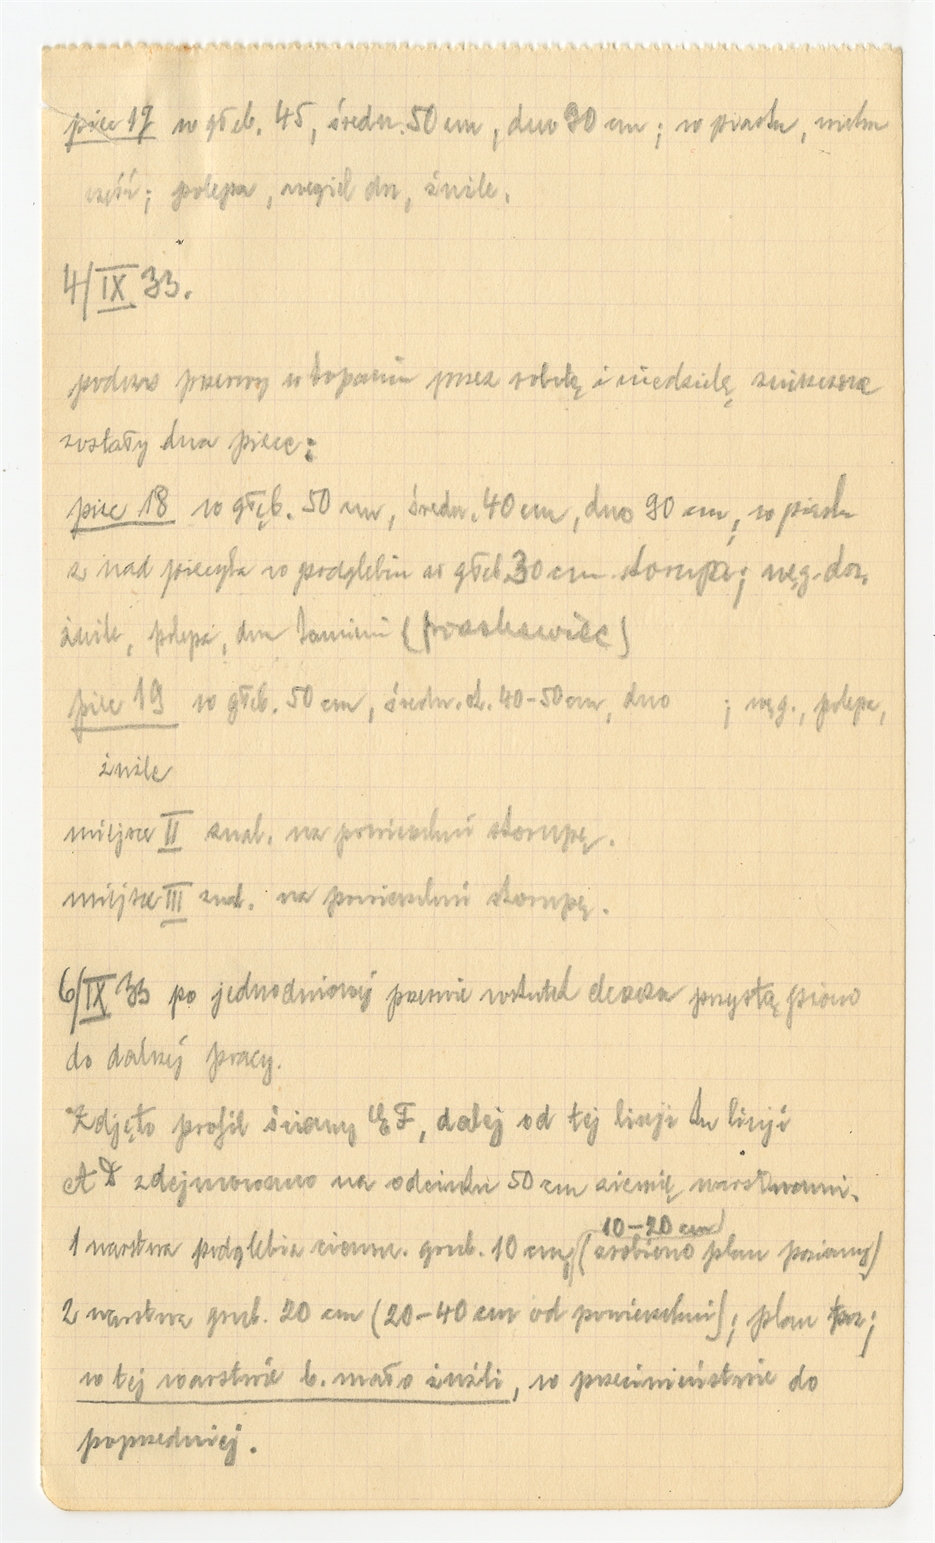 piec 17 w głęb. 45, średn. 50 cm, dno 90 cm; w piasku,
część; polepa, węgiel drz, żużle.
4/IX 33.
podczas przerwy w kopaniu przez sobotę i niedzielę zniszczone
zostały dwa piece:
piec 18 w głęb. 50 cm, średn. 40 cm, dno 90 cm, w piasku
z nad piecyka w podglebiu w głęb. 30 cm skorupa; węg. drz,
żużle, polepa, dwa kamienie (piaskowiec)
piec 19 w głęb. 50 cm, średn. ok. 40-50 cm, dno ; węg., polepa,
żużle
miejsce II znal. na powierzchni skorupę.
miejsce III znal. na powierzchni skorupę.
6/IX 33 po jednodniowej przerwie wskutek deszczu przystąpiono
do dalszej pracy.
Zdjęto profil ściany EF, dalej od tej linji ku linji
AD zdejmowano na odcinku 50 cm ziemię warstwami.
10-20 cm
1 warstwa podglebia ciemne. grub. 10 cm, (zrobiono plan poziomy)
2 warstwa grub. 20 cm (20-40 cm od powierzchni); plan poz;
w tej warstwie b. mało żużli, w przeciwieństwie do
poprzedniej.